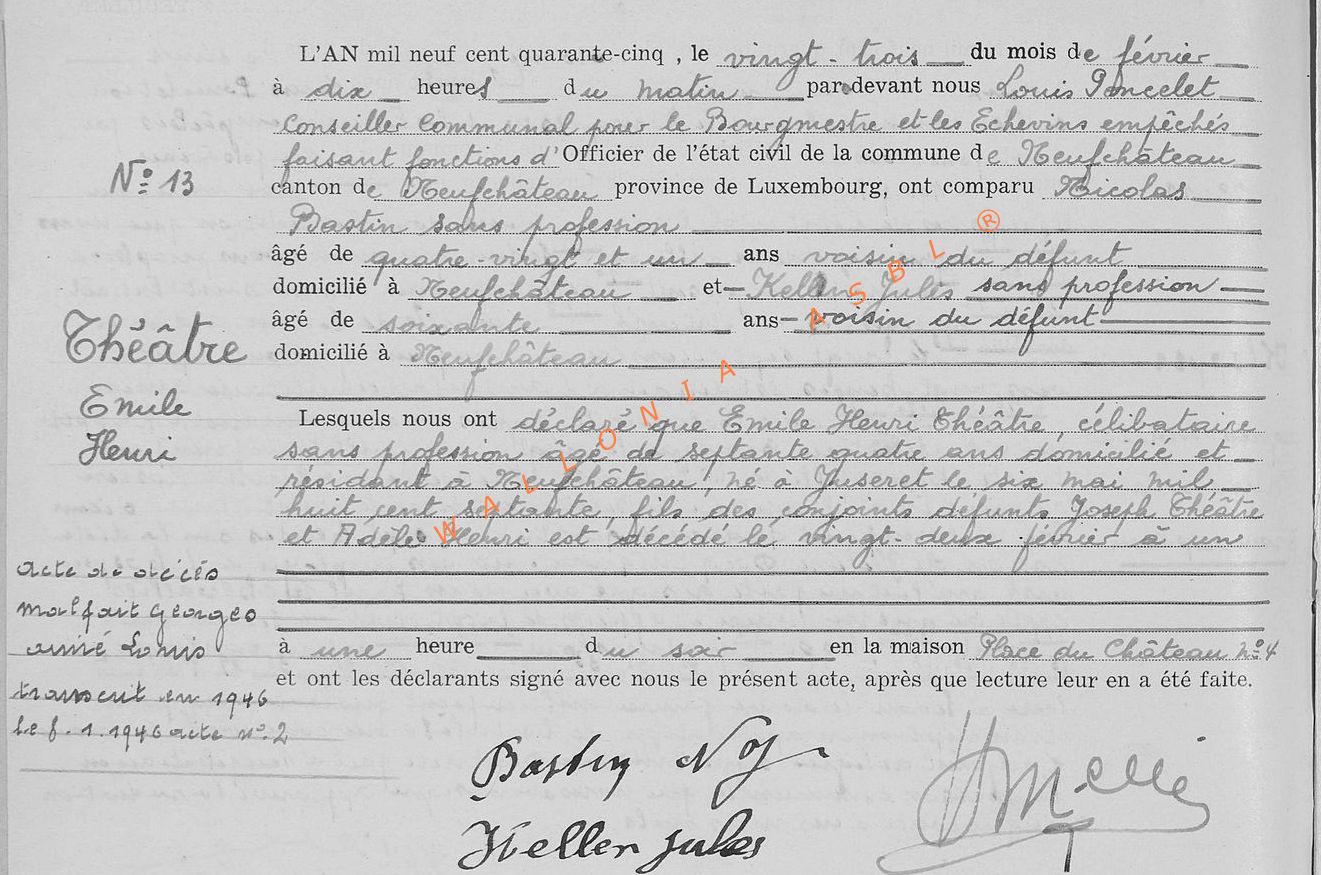 L'AN mil neuf cent quarante-cinq, le vingt-trois du mois de février
à dix heures du matin par devant nous Louis Poncelet
Conseiller Communal pour le Bourgmestre et les Echevins empêchés
faisant fonctions d'Officier de l'état civil de la commune de Neufchâteau
N° 13
canton de Neufchâteau province de Luxembourg, ont comparu Nicolas
Bastin sans profession
âgé de quatre-vingt et un ans voisin du défunt
domicilié à Neufchâteau et Keller Jules sans profession
âgé de soixante ans voisin du défunt
domicilié à Neufchâteau
Théâtre
Emile
Henri
Lesquels nous ont déclaré que Emile Henri Théâtre, célibataire
sans profession âgé de septante quatre ans domicilié et
résidant à Neufchâteau, né à Juseret le six mai mil
huit cent septante, fils des conjoints défunts Joseph Théâtre
et Adèle Henri est décédé le vingt-deux février à un
à une heure du soir en la maison Place du Château N° 4
et ont les déclarants signé avec nous le présent acte, après que lecture leur en a été faite.
acte de décès
Malfait Georges
aimé Louis
transcrit en 1946
le 8.1.1946 acte n° 2
Bastin N
Keller Jules
WALLONIA ASBL ®